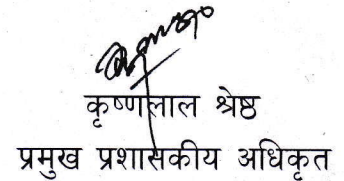 कृष्णलाल श्रेष्ठ
प्रमुख प्रशासकीय अधिकृत